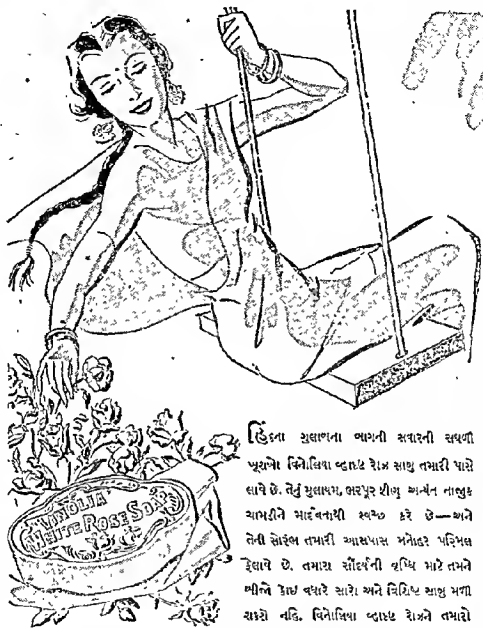 VINOLIA
WHITE ROSE SOAP
હિંદના ગુલાબના બાગની સવારની સઘળી
ખૂશબો વિનોલિયા વ્હાઇટ રોઝ સાબુ તમારી પાસે
લાવે છે. તેનું મુલાયમ, ભરપૂર ફીણ અત્યંત નાજુક
ચામડીને માર્દવતાથી સ્વચ્છ કરે છે—અને
તેની સૌરભ તમારી આસપાસ મનોહર પરિમલ
ફેલાવે છે. તમારા સૌંદર્યની વૃધ્ધિ માટે તમને
બીજો કોઇ વધારે સારો અને વિશિષ્ટ સાબુ મળી
શકશે નહિ. વિનોલિયા વ્હાઇટ રોઝને તમારો